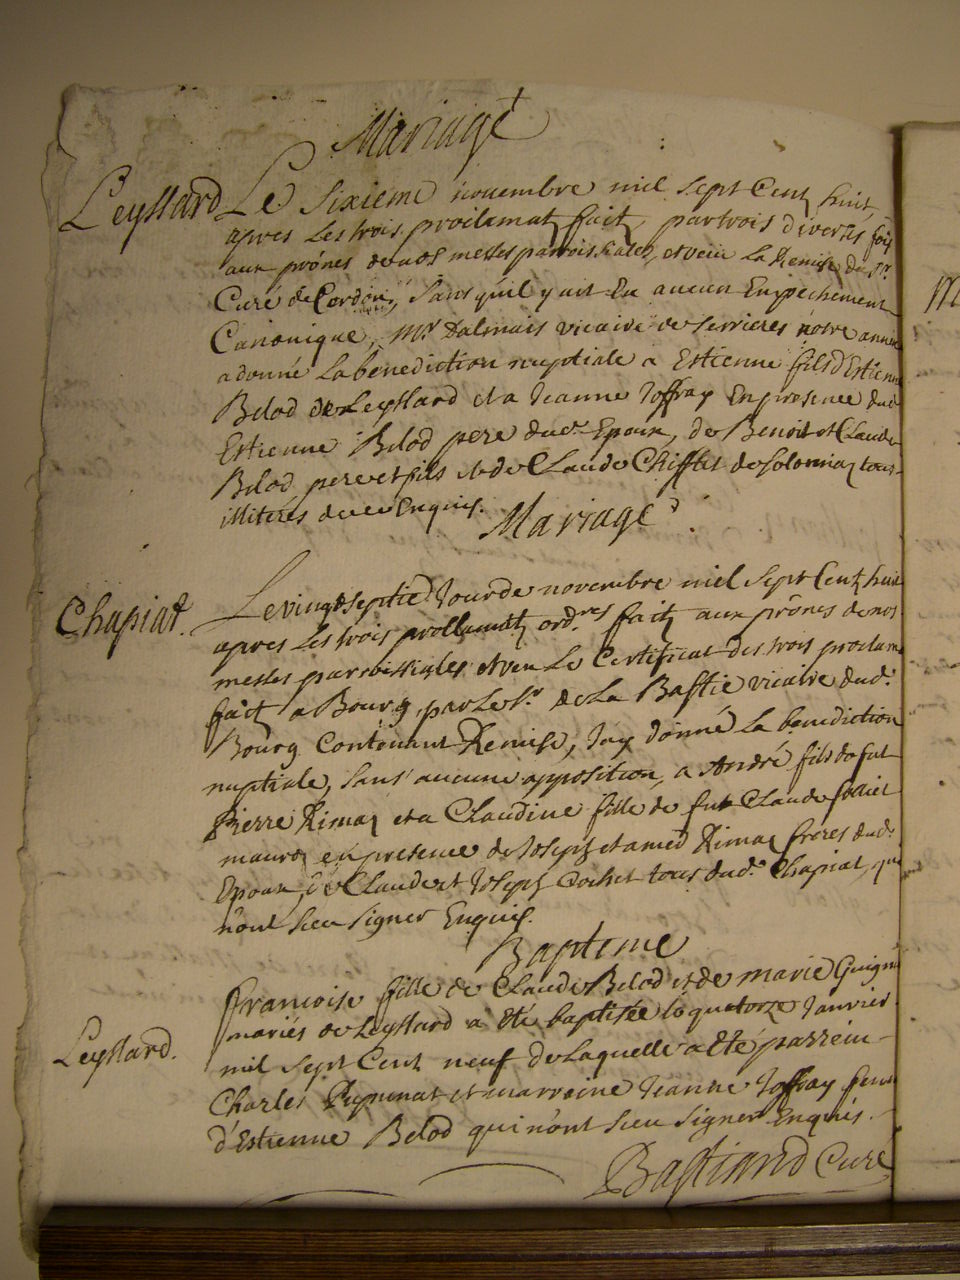 Mariage
Leyssard Le Sixieme novembre mil Sept Cent huit,
apres Les trois proclamat. fait, par trois diverses fois
aux prônes de nos messes parroissiales, et veu La Remise du Sr.
Curé de Cordon, Sans qu'il y ait Eu aucun Enpêchement
Canonique, Mr. Dalmais vicaire de Serrieres nôtre
a donné La benediction nuptiale a Estienne fils d'Estienne
Belod de Leyssard et a Jeanne Joffray En presence dud.
Estienne Belod pere dud. Epoux, de Benoit et Claude
Belod pere et fils et de Claude Chifflet de Solomiaz tous
illiterés Enquis.
Mariage
Chapiat. Le vingt Septie Jour de novembre mil Sept Cent huit
apres Les trois procllamat. ord.res fait aux prônes de nos
messes parroissiales et veu Le Certificat des trois proclam
fait a Bourg, par Le Sr. de La Bastie vicaire dud.
Bourg Contenant Remise, Jay donné La benediction
nuptiale, Sans aucune opposition, a André fils de fut
Pierre Rimaz et a Claudine fille de fut Claude
en presence de Joseph et amed Rimaz freres dud.
Epoux, de Claude et Joseph Cochet tous dud. Chapiat, qui
n'ont Sceu Signer Enquis.
Bapteme
francoise fille de Claude Belod et de marie Guign
Leyssard. mariés de Leyssard a été baptisée le quatorze Janvier
mil Sept Cent neuf de Laquelle a Eté parrein
Charles et marreine Jeanne Joffray fem
d'Estienne Belod qui n'ont Sceu Signer Enquis.
Bastiand Curé